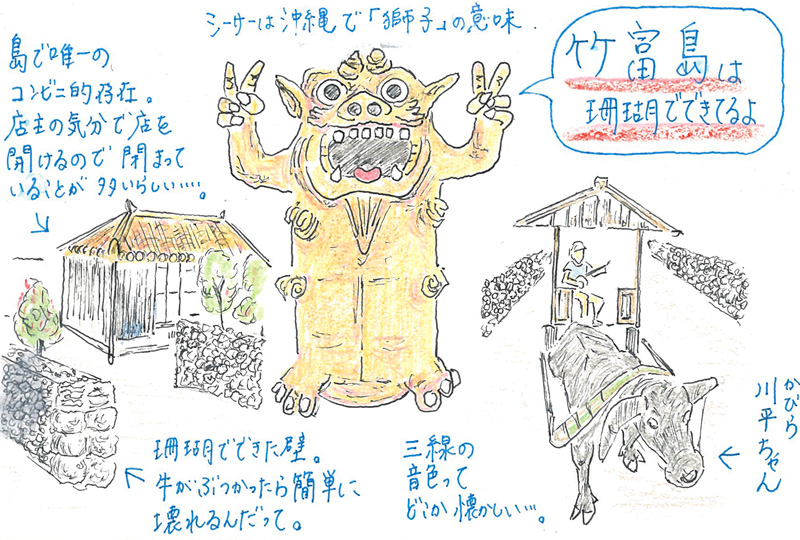 シーサーは沖縄で「獅子」の意味
竹富島は
珊瑚でできてるよ
島で唯一の
コンビニ的存在。
店主の気分で店を
開けるので閉まって
いることが多いらしい…。
珊瑚でできた壁。
牛がぶつかったら簡単に
壊れるんだって。
三線の
音色って
どこか懐かしい…。
かびら
川平ちゃん